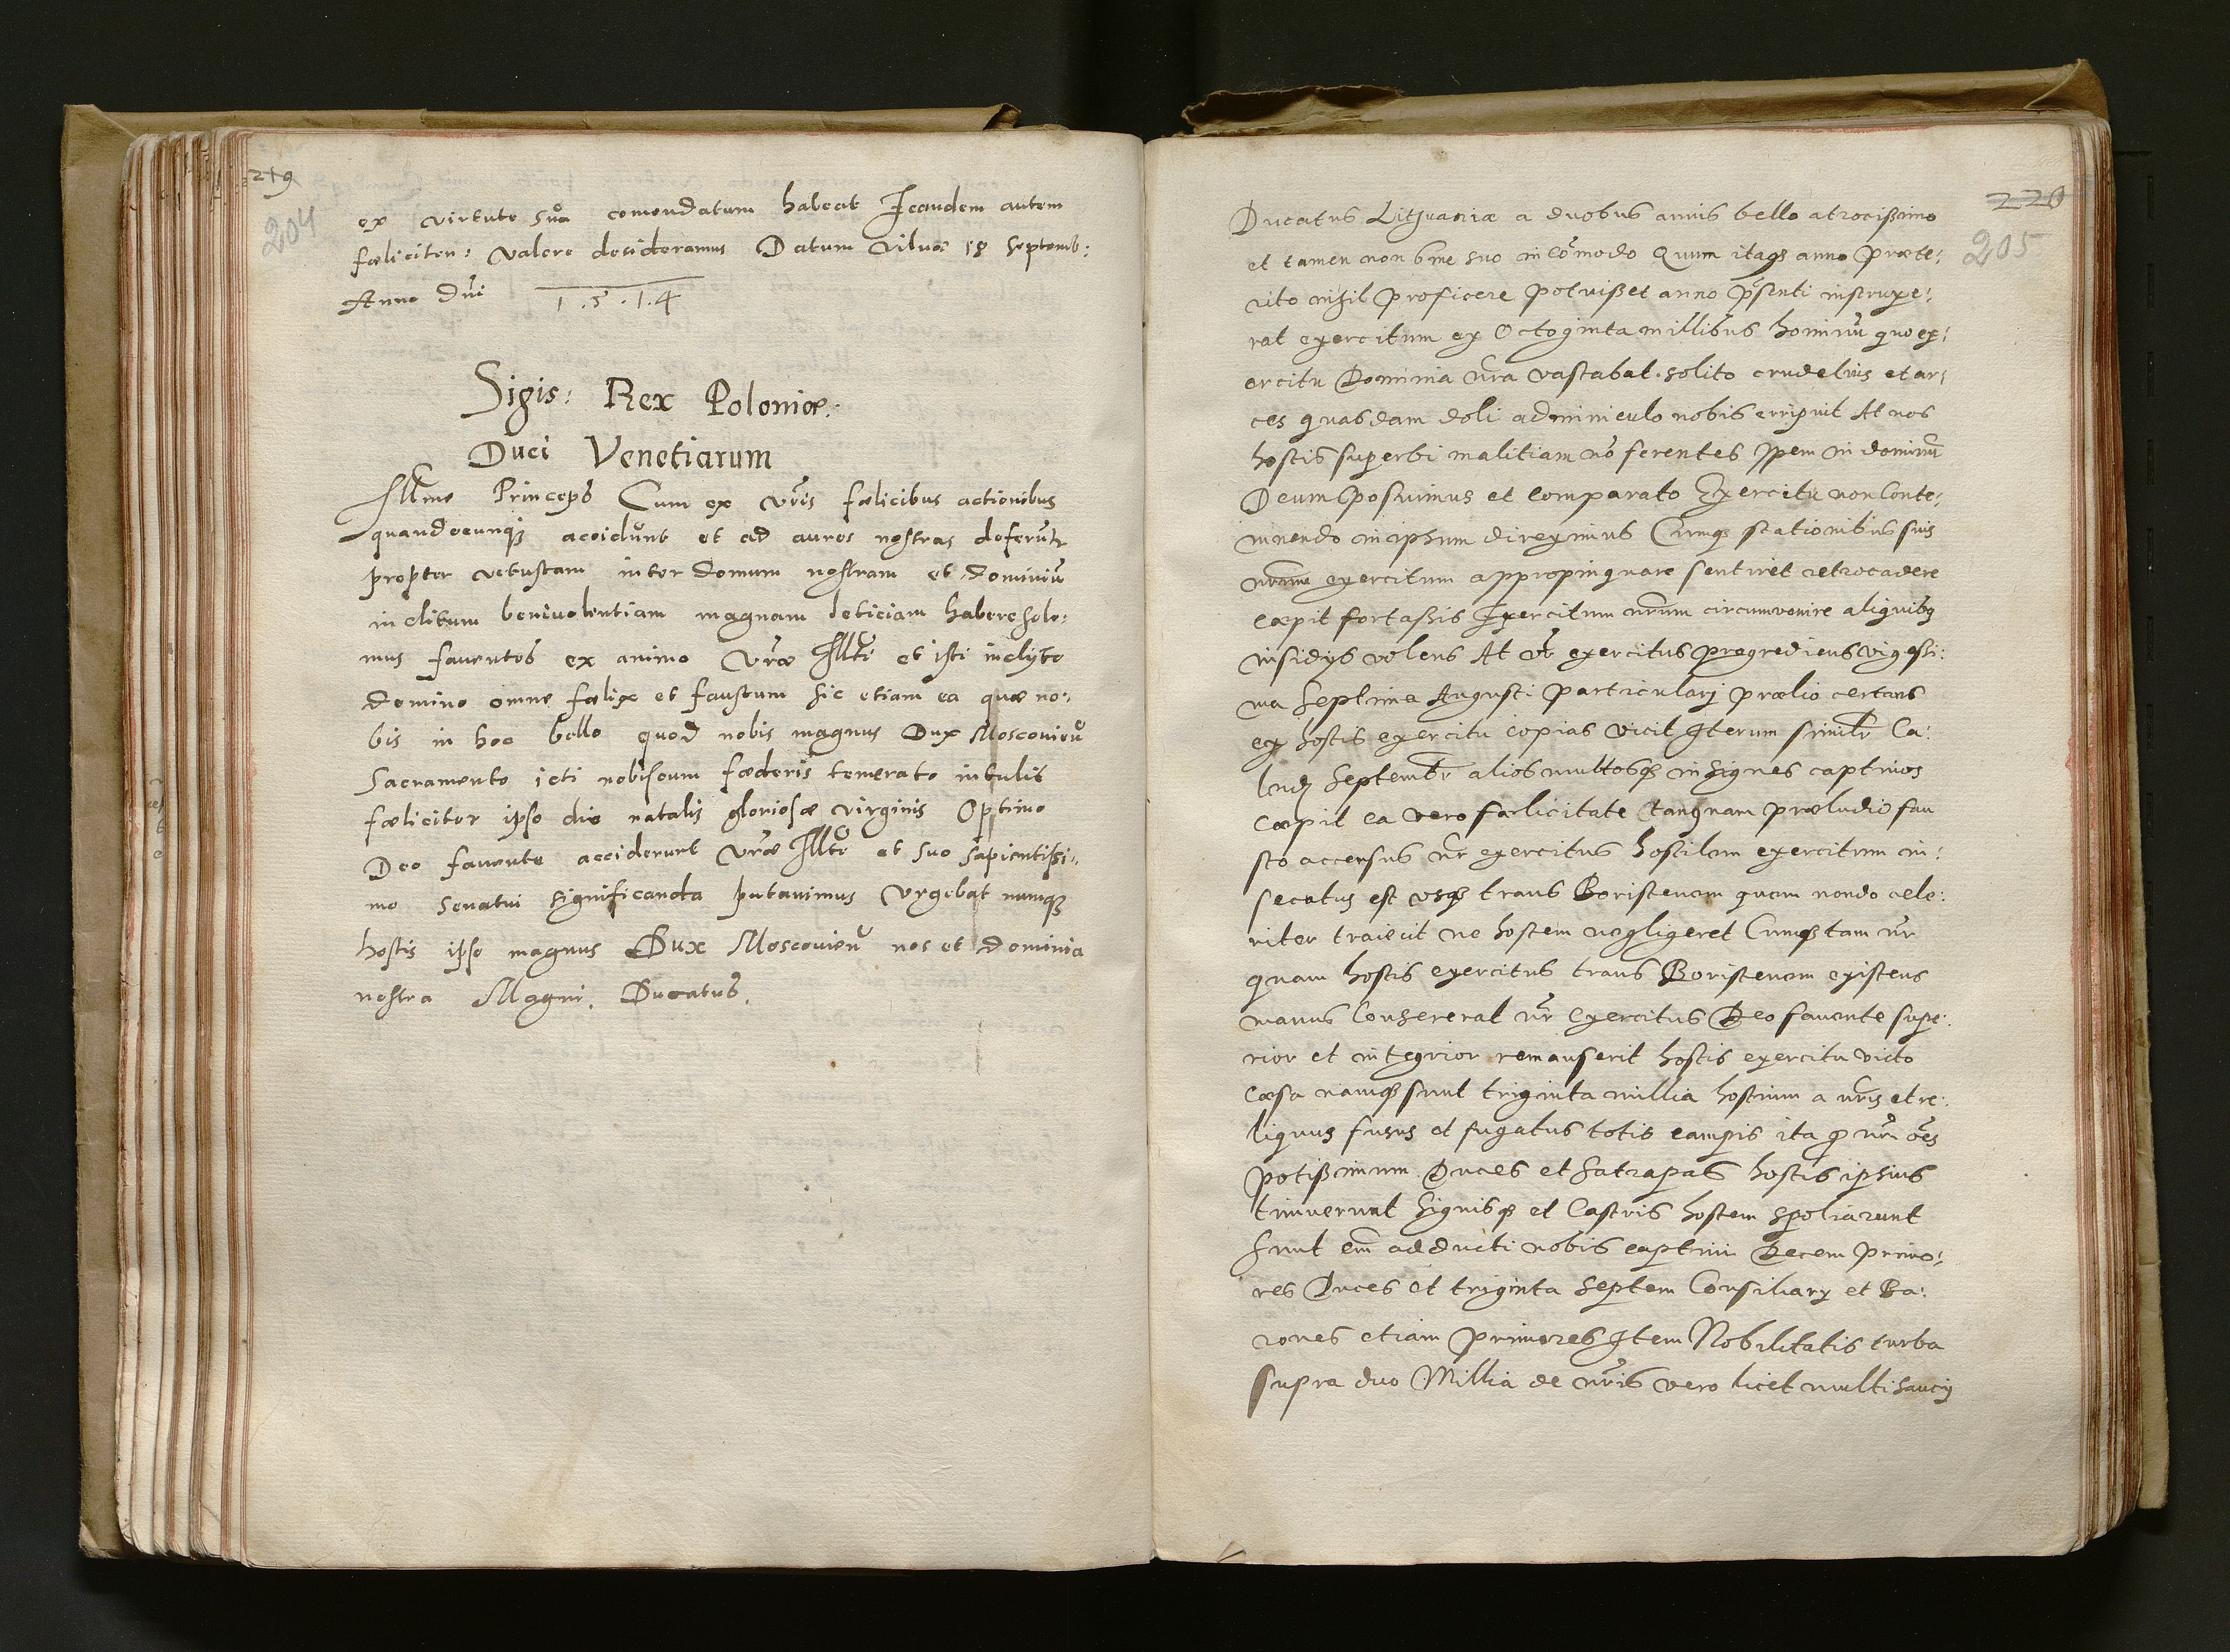 219
204
ex virtute sua comendatum habeat Eeandem autem
fæliciter: valere desideramus Datum vilnæ 18 Septemb:
Anno Dni 1.5.1.4
Sigis: Rex Poloniæ:
Duci Venetiarum
Illme Princeps Cum ex vris fælicibus actionibus
quandocunq; accidunt et ad aures nostras deferutr
propter vetustam inter domum nostram et dominiu
inclitum benivolentiam magnam leticiam habere sole:
mus faventes ex animo vræ Illti et isti inclyto
domino omne fælix et faustum sic etiam ea quæ no:
bis in hoc bello quod nobis magnus Dux Moscovieu
Sacramento icti nobiscum fæderis temerato intulit
fæliciter ipso die natalis gloriosæ virginis Optimo
Deo favente acciderunt vræ Illti et suo sapientissi:
mo senatui significanda putavimus Vrgebat namq;
hostis ipse magnus Dux Moscovieu nos et dominia
nostra Magni. Ducatus.
220
205
Ducatus Lithuaniæ a duobus annis bello atrocissimo
et tamen non sine suo incomodo Quum itaq; anno præte:
rito nihil proficere potuisset anno psenti instruxe:
rat exercitum ex Octoginta millibus hominu quo ex:
ercitu Dominia nra vastabat solito crudelius et ar:
ces quasdam doli adminiculo nobis erripuit At nos
hostis superbi malitiam no ferentes spem in dominu
Deum posuimus et comparato Exercitu non conte:
mnendo in ipsum direximus Cumq; stationibus suis
nrum exercitum appropinquare sentiret retrocædere
cæpit fortassis Exercitum nrum circumvenire aliquibq
insidijs volens At nr exercitus progrediens vigessi:
ma septima Augusti particularj prælio certans
ex hostis exercitu copias vicit Iterum similr Ca:
lnd Septembr alios multosq; insignes captivos
cæpit ea vero fælicitate tanquam præludio fau
sto accensus nr exercitus hostilem exercitum in:
secutus est usq; trans Boristenem quem nando cele:
riter traiecit ne hostem negligeret Cumq; tam nr
quam hostis exercitus trans Boristenem existens
manus consererat nr exercitus Deo favente supe:
rior et integrior remanserit hostis exercitu victo
Cæsa namq; sunt triginta millia hostium a nris et re:
liquus fusus et fugatus totis campis ita q nri oes
potissimum Duces et satrapas hostis ipsius
tenuerunt signisq; et Castris hostem spoliarunt
Sunt em adducti nobis captivi Decem primo:
res Duces et triginta septem Consiliarij et Ba:
rones etiam primores Item Nobilitatis turba
supra duo Millia de nris vero licet multi saucij